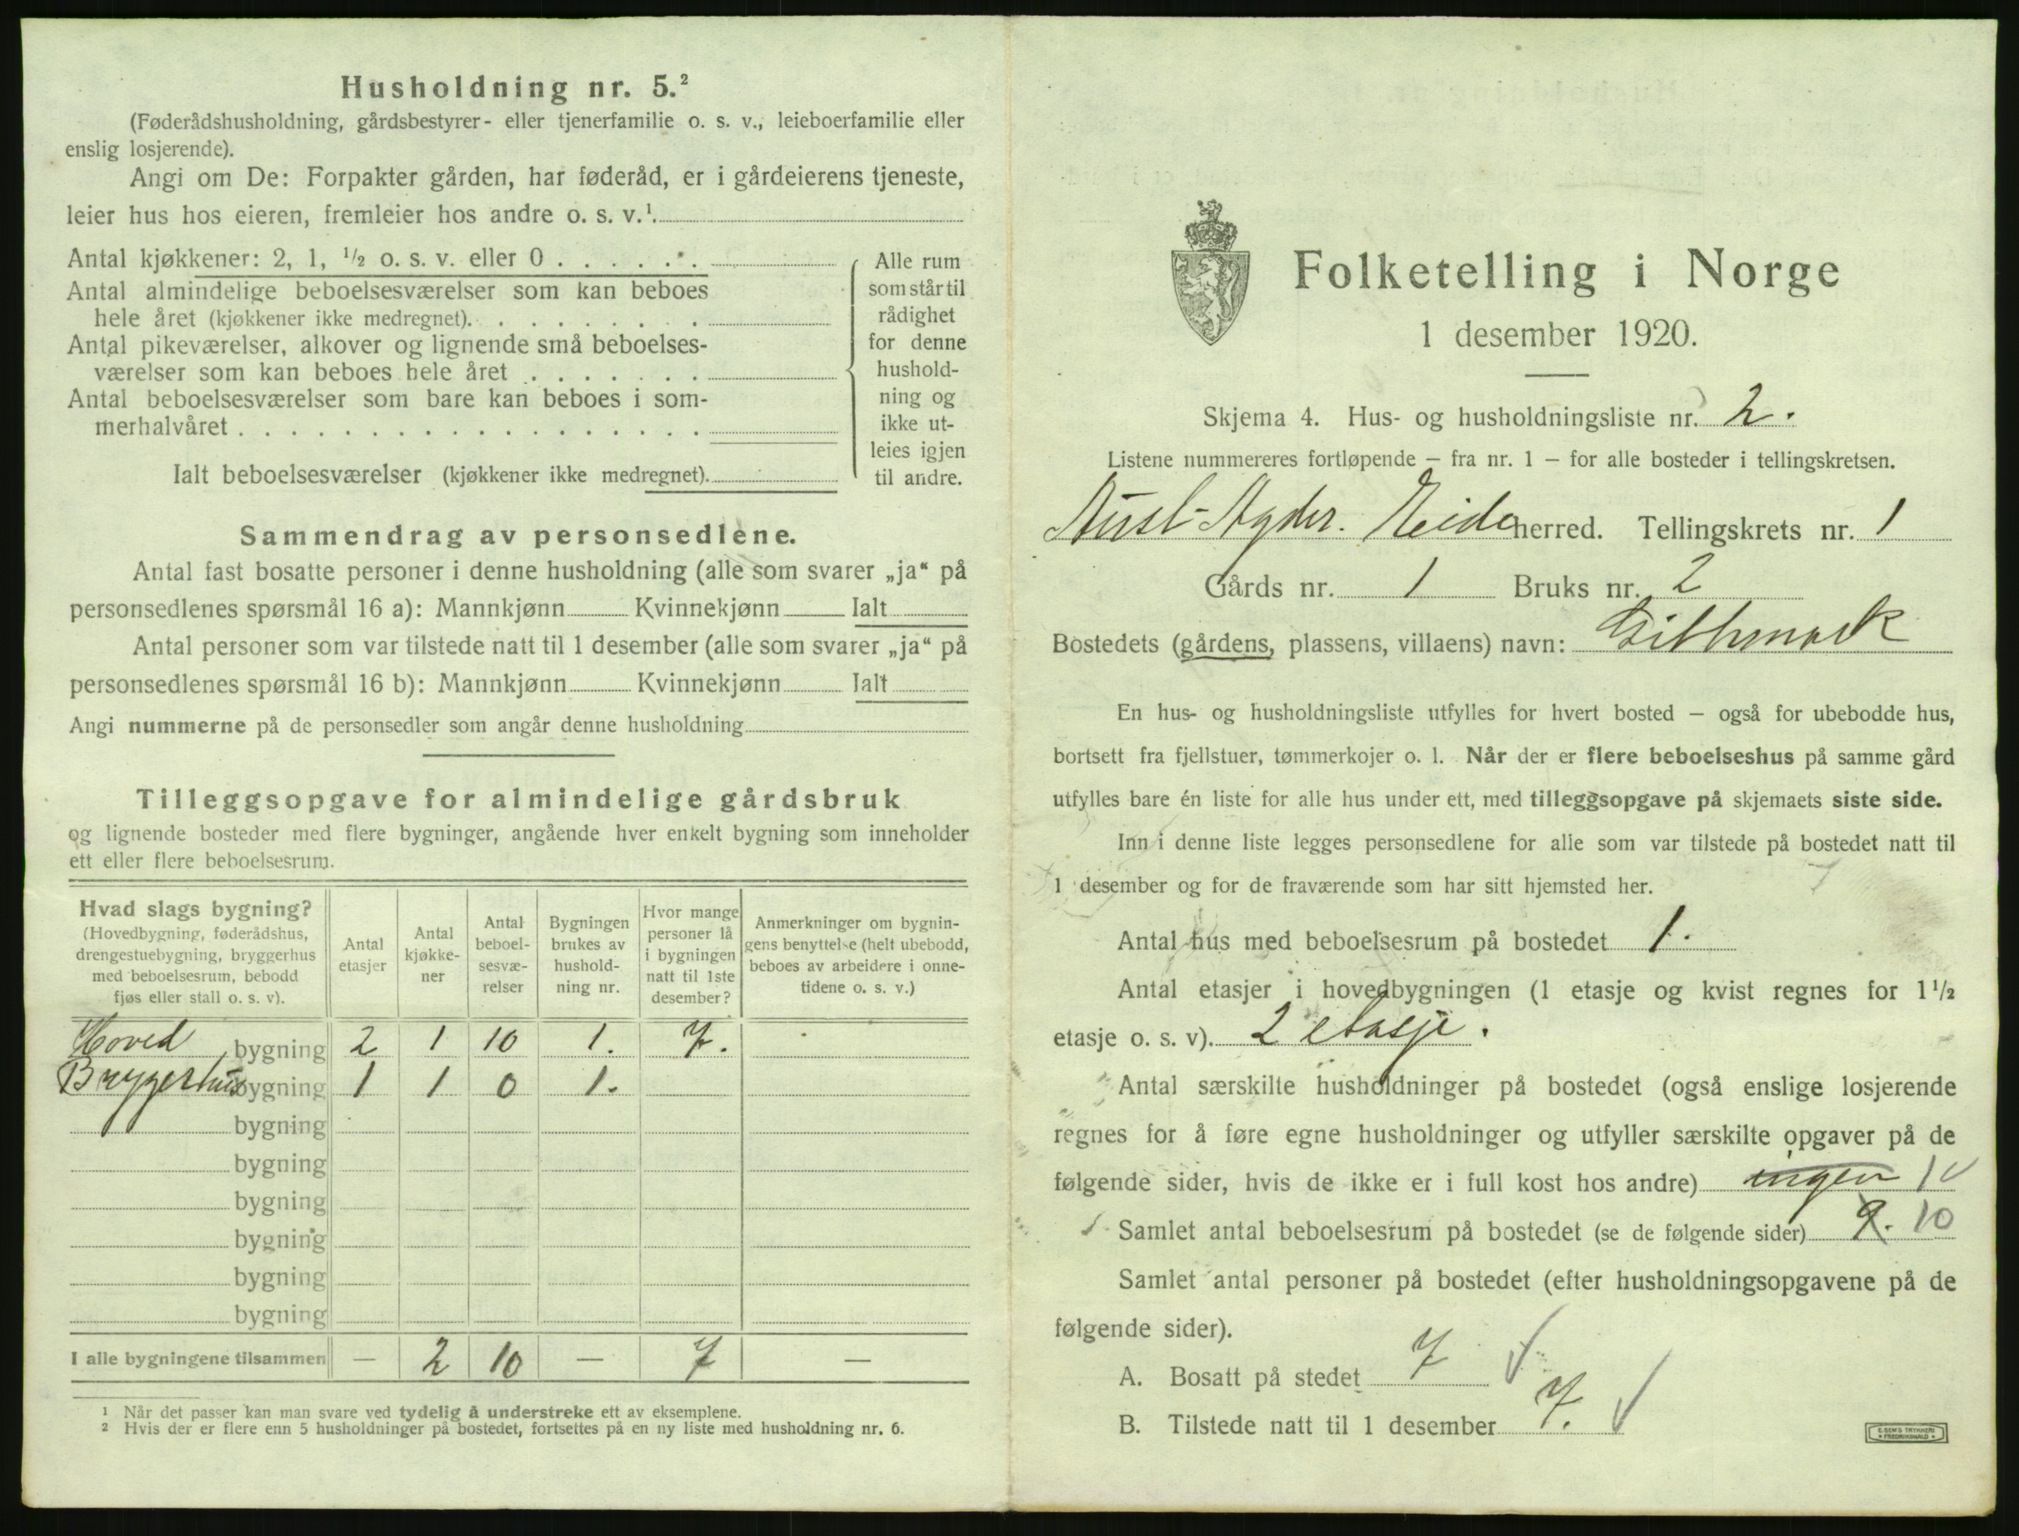 Husholdning nr. 5.²
(Føderådshusholdning, gårdsbestyrer- eller tjenerfamilie o. s. v., leieboerfamilie eller
enslig losjerende).
Angi om De: Forpakter gården, har føderåd, er i gårdeierens tjeneste,
leier hus hos eieren, fremleier hos andre o. s. v.¹
Antal kjøkkener: 2, 1, ½ o. s. v. eller 0 . . . . . .
Antal almindelige beboelsesværelser som kan beboes
hele året (kjøkkener ikke medregnet). . . . . . . . .
Antal pikeværelser, alkover og lignende små beboelses-
værelser som kan beboes hele året . . . . . . .
Antal beboelsesværelser som bare kan beboes i som-
merhalvåret . . . . . . . . . . . . . . . . . .
Ialt beboelsesværelser (kjøkkener ikke medregnet).
Alle rum
som står til
rådighet
for denne
hushold-
ning og
ikke ut-
leies igjen
til andre.
Sammendrag av personsedlene.
Antal fast bosatte personer i denne husholdning (alle som svarer „ja“ på
personsedlenes spørsmål 16 a): Mannkjønn Kvinnekjønn Ialt
Antal personer som var tilstede natt til 1 desember (alle som svarer „ja“ på
personsedlenes spørsmål 16 b): Mannkjønn Kvinnekjønn Ialt
Angi nummerne på de personsedler som angår denne husholdning
Tilleggsopgave for almindelige gårdsbruk
og lignende bosteder med flere bygninger, angående hver enkelt bygning som inneholder
ett eller flere beboelsesrum.
Hvad slags bygning?
(Hovedbygning, føderådshus,
drengestuebygning, bryggerhus
med beboelsesrum, bebodd
fjøs eller stall o. s. v).
Antal
etasjer
Antal
kjøkke-
ner
Antal
beboel-
sesvæ-
relser
Bygningen
brukes av
hushold-
ning nr.
Hvor mange
personer lå
i bygningen
natt til 1ste
desember?
Anmerkninger om bygnin-
gens benyttelse (helt ubebodd,
beboes av arbeidere i onne-
tidene o. s. v.)
Hoved bygning 2 1 10 1. 7.
Bryggerhus bygning 1 1 0 1.
bygning
bygning
bygning
bygning
bygning
bygning
I alle bygningene tilsammen — 2 10 — 7 —
¹ Når det passer kan man svare ved tydelig å understreke ett av eksemplene.
² Hvis der er flere enn 5 husholdninger på bostedet, fortsettes på en ny liste med husholdning nr. 6.
Folketelling i Norge
1 desember 1920.
Skjema 4. Hus- og husholdningsliste nr. 2.
Listene nummereres fortløpende – fra nr. 1 – for alle bosteder i tellingskretsen.
Aust-Agder. Eide herred. Tellingskrets nr. 1
Gårds nr. 1 Bruks nr. 2
Bostedets (gårdens, plassens, villaens) navn:
En hus- og husholdningsliste utfylles for hvert bosted – også for ubebodde hus,
bortsett fra fjellstuer, tømmerkojer o. l. Når der er flere beboelseshus på samme gård
utfylles bare én liste for alle hus under ett, med tilleggsopgave på skjemaets siste side.
Inn i denne liste legges personsedlene for alle som var tilstede på bostedet natt til
1 desember og for de fraværende som har sitt hjemsted her.
Antal hus med beboelsesrum på bostedet 1.
Antal etasjer i hovedbygningen (1 etasje og kvist regnes for 1½
etasje o. s. v). 2 etasje.
Antal særskilte husholdninger på bostedet (også enslige losjerende
regnes for å føre egne husholdninger og utfyller særskilte opgaver på de
følgende sider, hvis de ikke er i full kost hos andre) ingen 1
Samlet antal beboelsesrum på bostedet (se de følgende sider) 9. 10
Samlet antal personer på bostedet (efter husholdningsopgavene på de
følgende sider).
A. Bosatt på stedet 7
B. Tilstede natt til 1 desember 7.
E. SEM'S TRYKKERI
FREDRIKSHALD